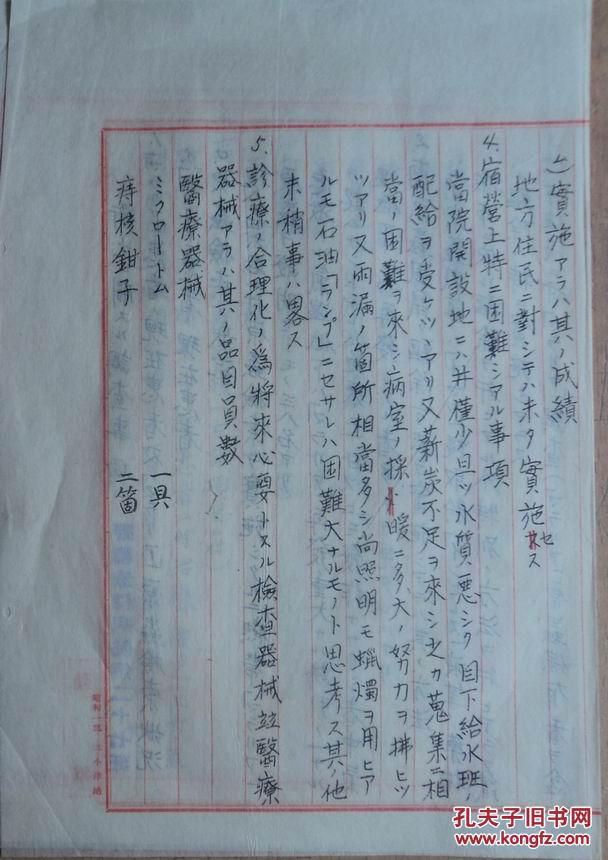 ㄅ實施アラハ其ノ成績
地方住民ニ對シテハ未タ實施セス
4、宿營上特ニ困難シアル事項
當院開設地ニハ井僅少且ツ水質悪シク目下給水班ノ
配給ヲ受ケツヽアリ又薪炭不足ヲ來シ之カ蒐集ニ相
當ノ困難ヲ來シ病室ノ採暖ニ多大ノ努力ヲ拂ヒツ
ツアリ又雨漏ノ箇所相當多シ尚照明モ蠟燭ヲ用ヒア
ルモ石油「ランプ」ニセサレハ困難大ナルモノト思考ス其ノ他
末梢事ハ畧ス
5、診療ノ合理化ノ爲將來必要トスル檢查器械並醫療
器械アラハ其ノ品目員數
醫療器械
ミクロートム 一具
痔核鉗子 二箇
孔夫子旧书网
kongfz.com